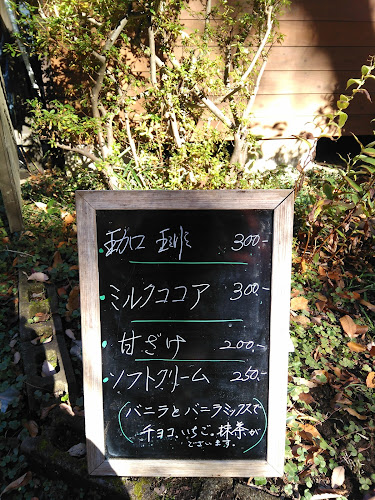 珈琲 300.-
ミルクココア 300.-
甘ざけ 200.-
ソフトクリーム 250.-
(バニラと バニラミックスで
チョコ、いちご。抹茶が
ございます。)